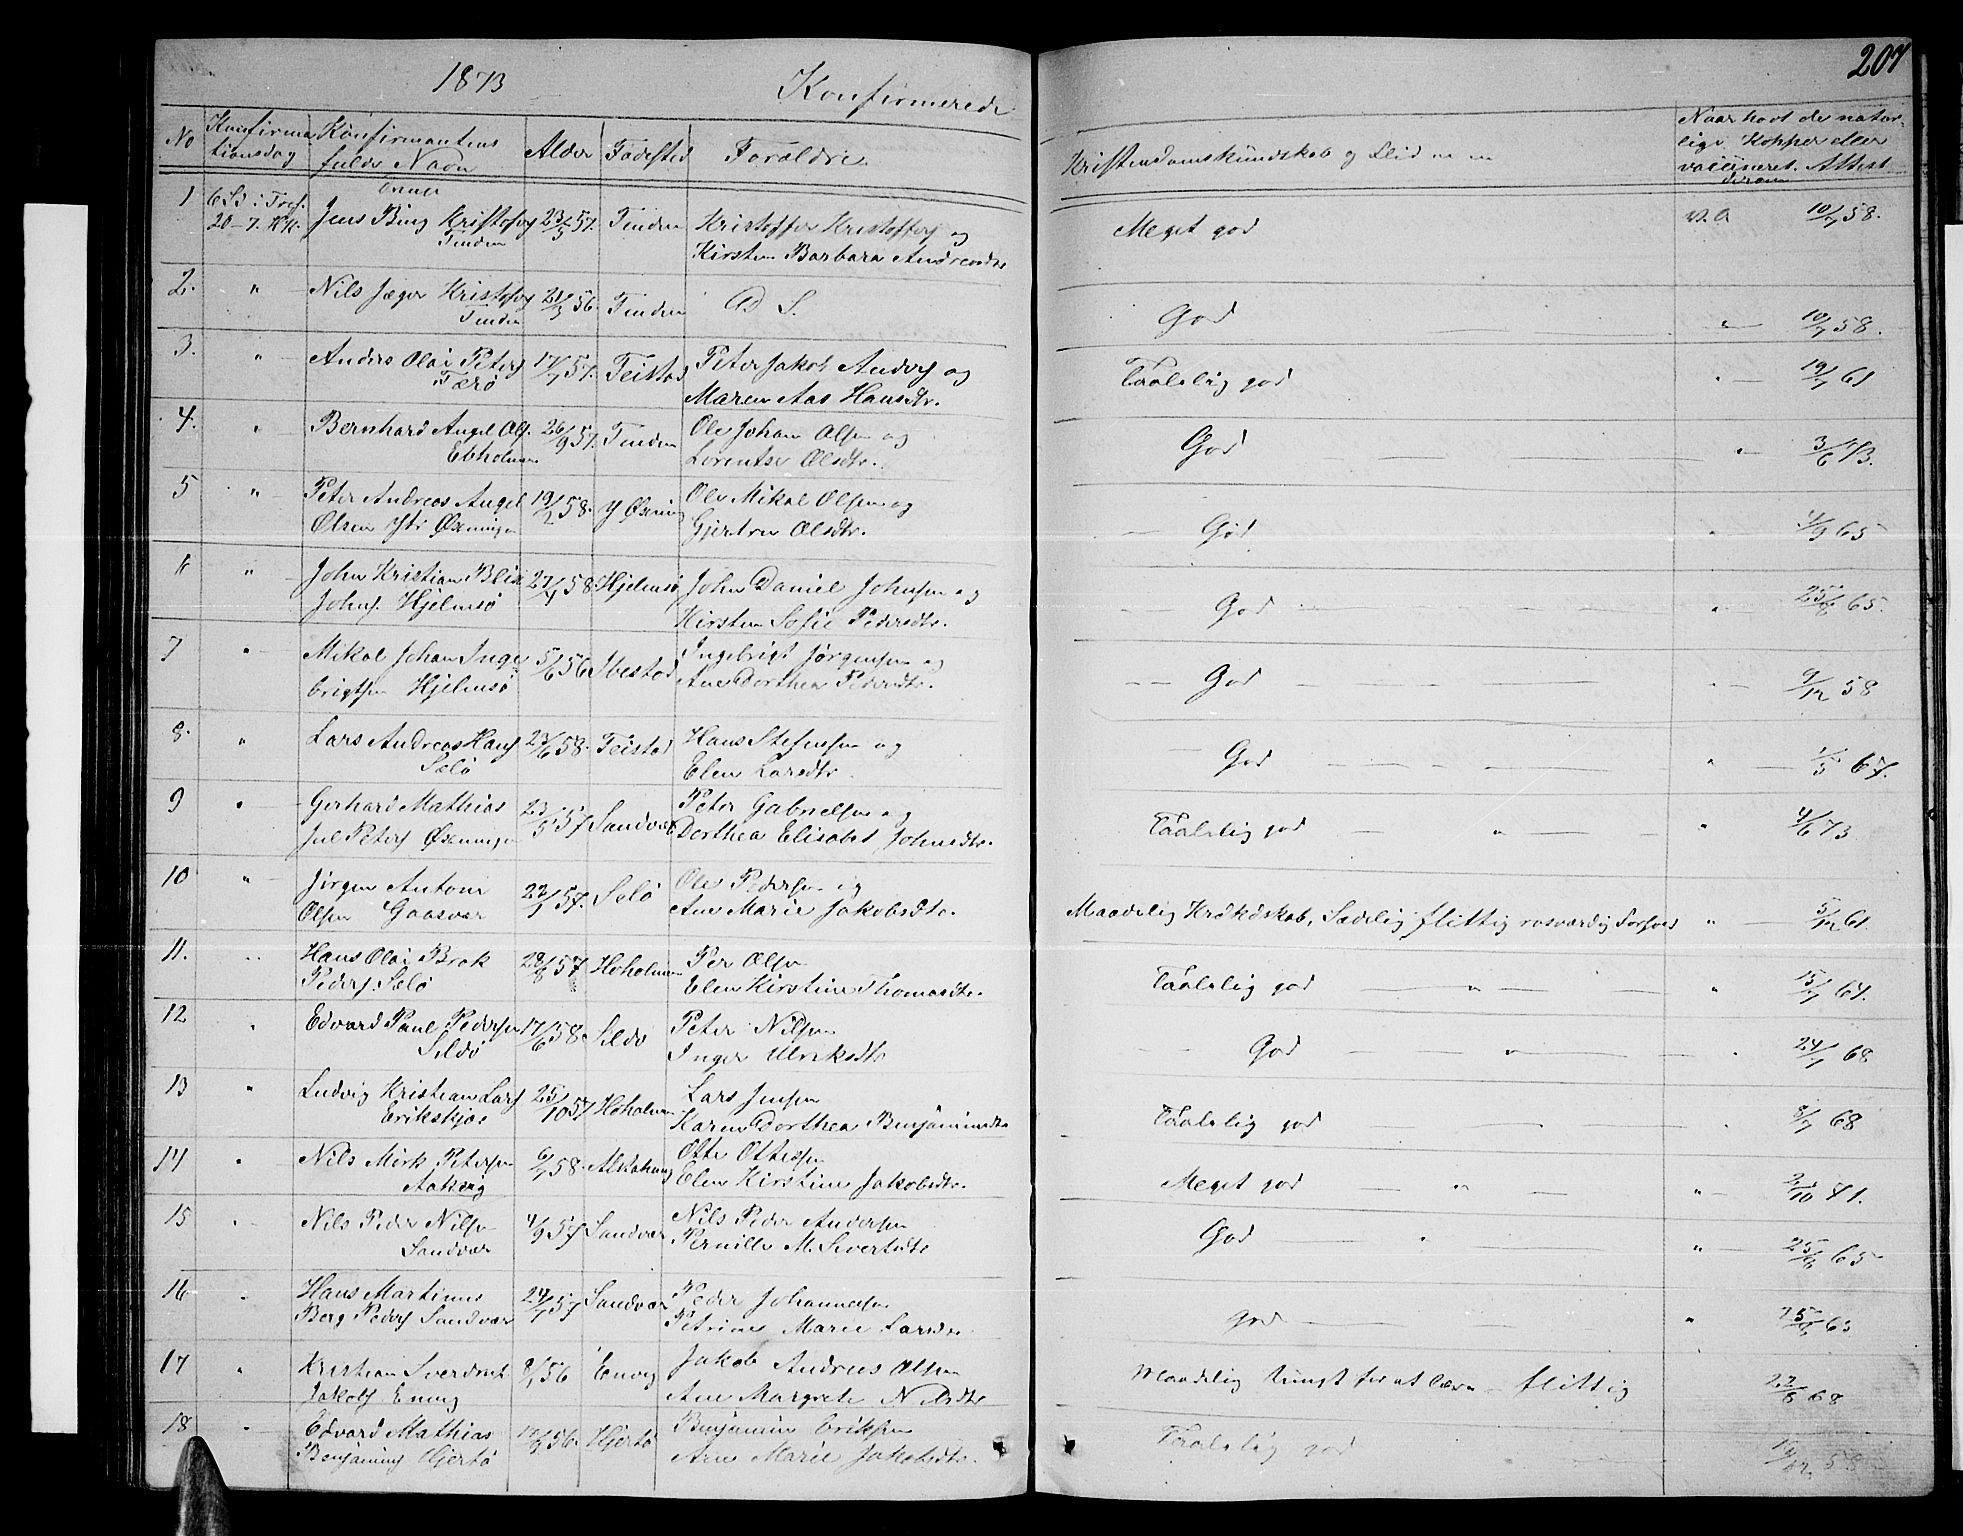 1873 Konfirmerede
207
No Konfirma tionsdag Konfirmantens fulde Navn Alder Fødested Forældre Kristendomskundskab og Flid Naar havt de natur- lige Kopper eller vaccineret. Attest derom
1 6 S i Tref. 20-7. Jens Bing Kristofs Tinden 23/5 57. Tinden Kristoffer Kristoffers og Kirsten Barbara Andreasdtr Meget god v. A 10/7 58.
2. " Nils Jæger Kristofs Tinden 21/3 56. Tinden D S. God " 10/7 58.
3. " Anders Olai Peters Færø 17/7 57. Feistad Peter Jakob Anders og Maren Aas Hansdtr. Taalelig god " 19/7 61
4. " Bernhard Angel Ols. Ebholmen 26/9 57. Tinden Ole Johan Olsen og Lorentse Olsdtr. God " 3/6 73.
5 " Peter Andreas Angel Olsen Ytr Øxningen 19/2 58. Y Øxning Ole Mikal Olsen og Gjertru Olsdtr. God " 1/9 65
6 " John Kristian Blix Johns. Hjelmsø 27/4 58. Hjelmsø John Daniel Johnsen og Kirsten Sofie Pedersdtr. God " 25/8 65.
7 " Mikal Johan Inge brigtsen Hjelmsø 5/6 56 Ibestad Ingebrigt Jørgensen og Ane Dorthea Pedersdtr. God " 9/12 58
8. " Lars Andreas Hans Sælø 23/6 58. Feistad Hans Stefensen og Elen Larsdtr. God " 1/5 67.
9 " Gerhard Mathias Jul Peters Øxningen 23/5 57 Sandvær Peter Gabrielsen og Dorthea Elisabet Johnsdtr. Taalelig god " " 4/6 73
10 " Jørgen Antoni Olsen Gaasvær 22/1 57. Selø Ole Pedersen og Ane Marie Jakobsdtr. Maadelig Krdkdskab, Sædelig flittig rosværdig Forhold " 5/12 61.
11. " Hans Olai Brok Peders. Sælø 28/8 57 Hoholmen Per Olsen Elen Kirstine Thomasdtr. Taalelig god " " 15/7 61.
12 " Edvard Paul Pedersen Seldø 17/6 58. Seldø Peter Nilsen Inger Ulriksdtr God " " 24/7 68
13 " Ludvig Kristian Lars Erikskjær 25/10 57 Hoholmen Lars Jensen Karen Dorthea Benjaminsdtr Taalelig god " 8/7 68
14 " Nils Mørk Petersen Aakvig 6/1 58. Alstahaug Otte Ottesen Elen Kirstine Jakobsdtr. Meget god " " 2/10 71.
15 " Nils Peder Nilsen Sandvær 4/9 57 Sandvær Nils Peder Andersen Pernille M. Sivertsdtr God " " 25/8 65
16 " Hans Martinus Berg Peders Sandvær 24/1 57 Sandvær Peder Johannesen Petrine Marie Larsdtr God " 25/8 65
17 " Kristian Sverdrup Jakobs. Envig 8/1 56 Envig Jakob Andreas Olsen Ane Margrete Nilsdtr Maadelig tungt for at lære flittig 22/8 68
18 " Edvard Mathias Benjamins Hjertø 56. Hjertø Benjamin Eriksen Ane Marie Jakobsdtr. Taalelig god 19/12 58